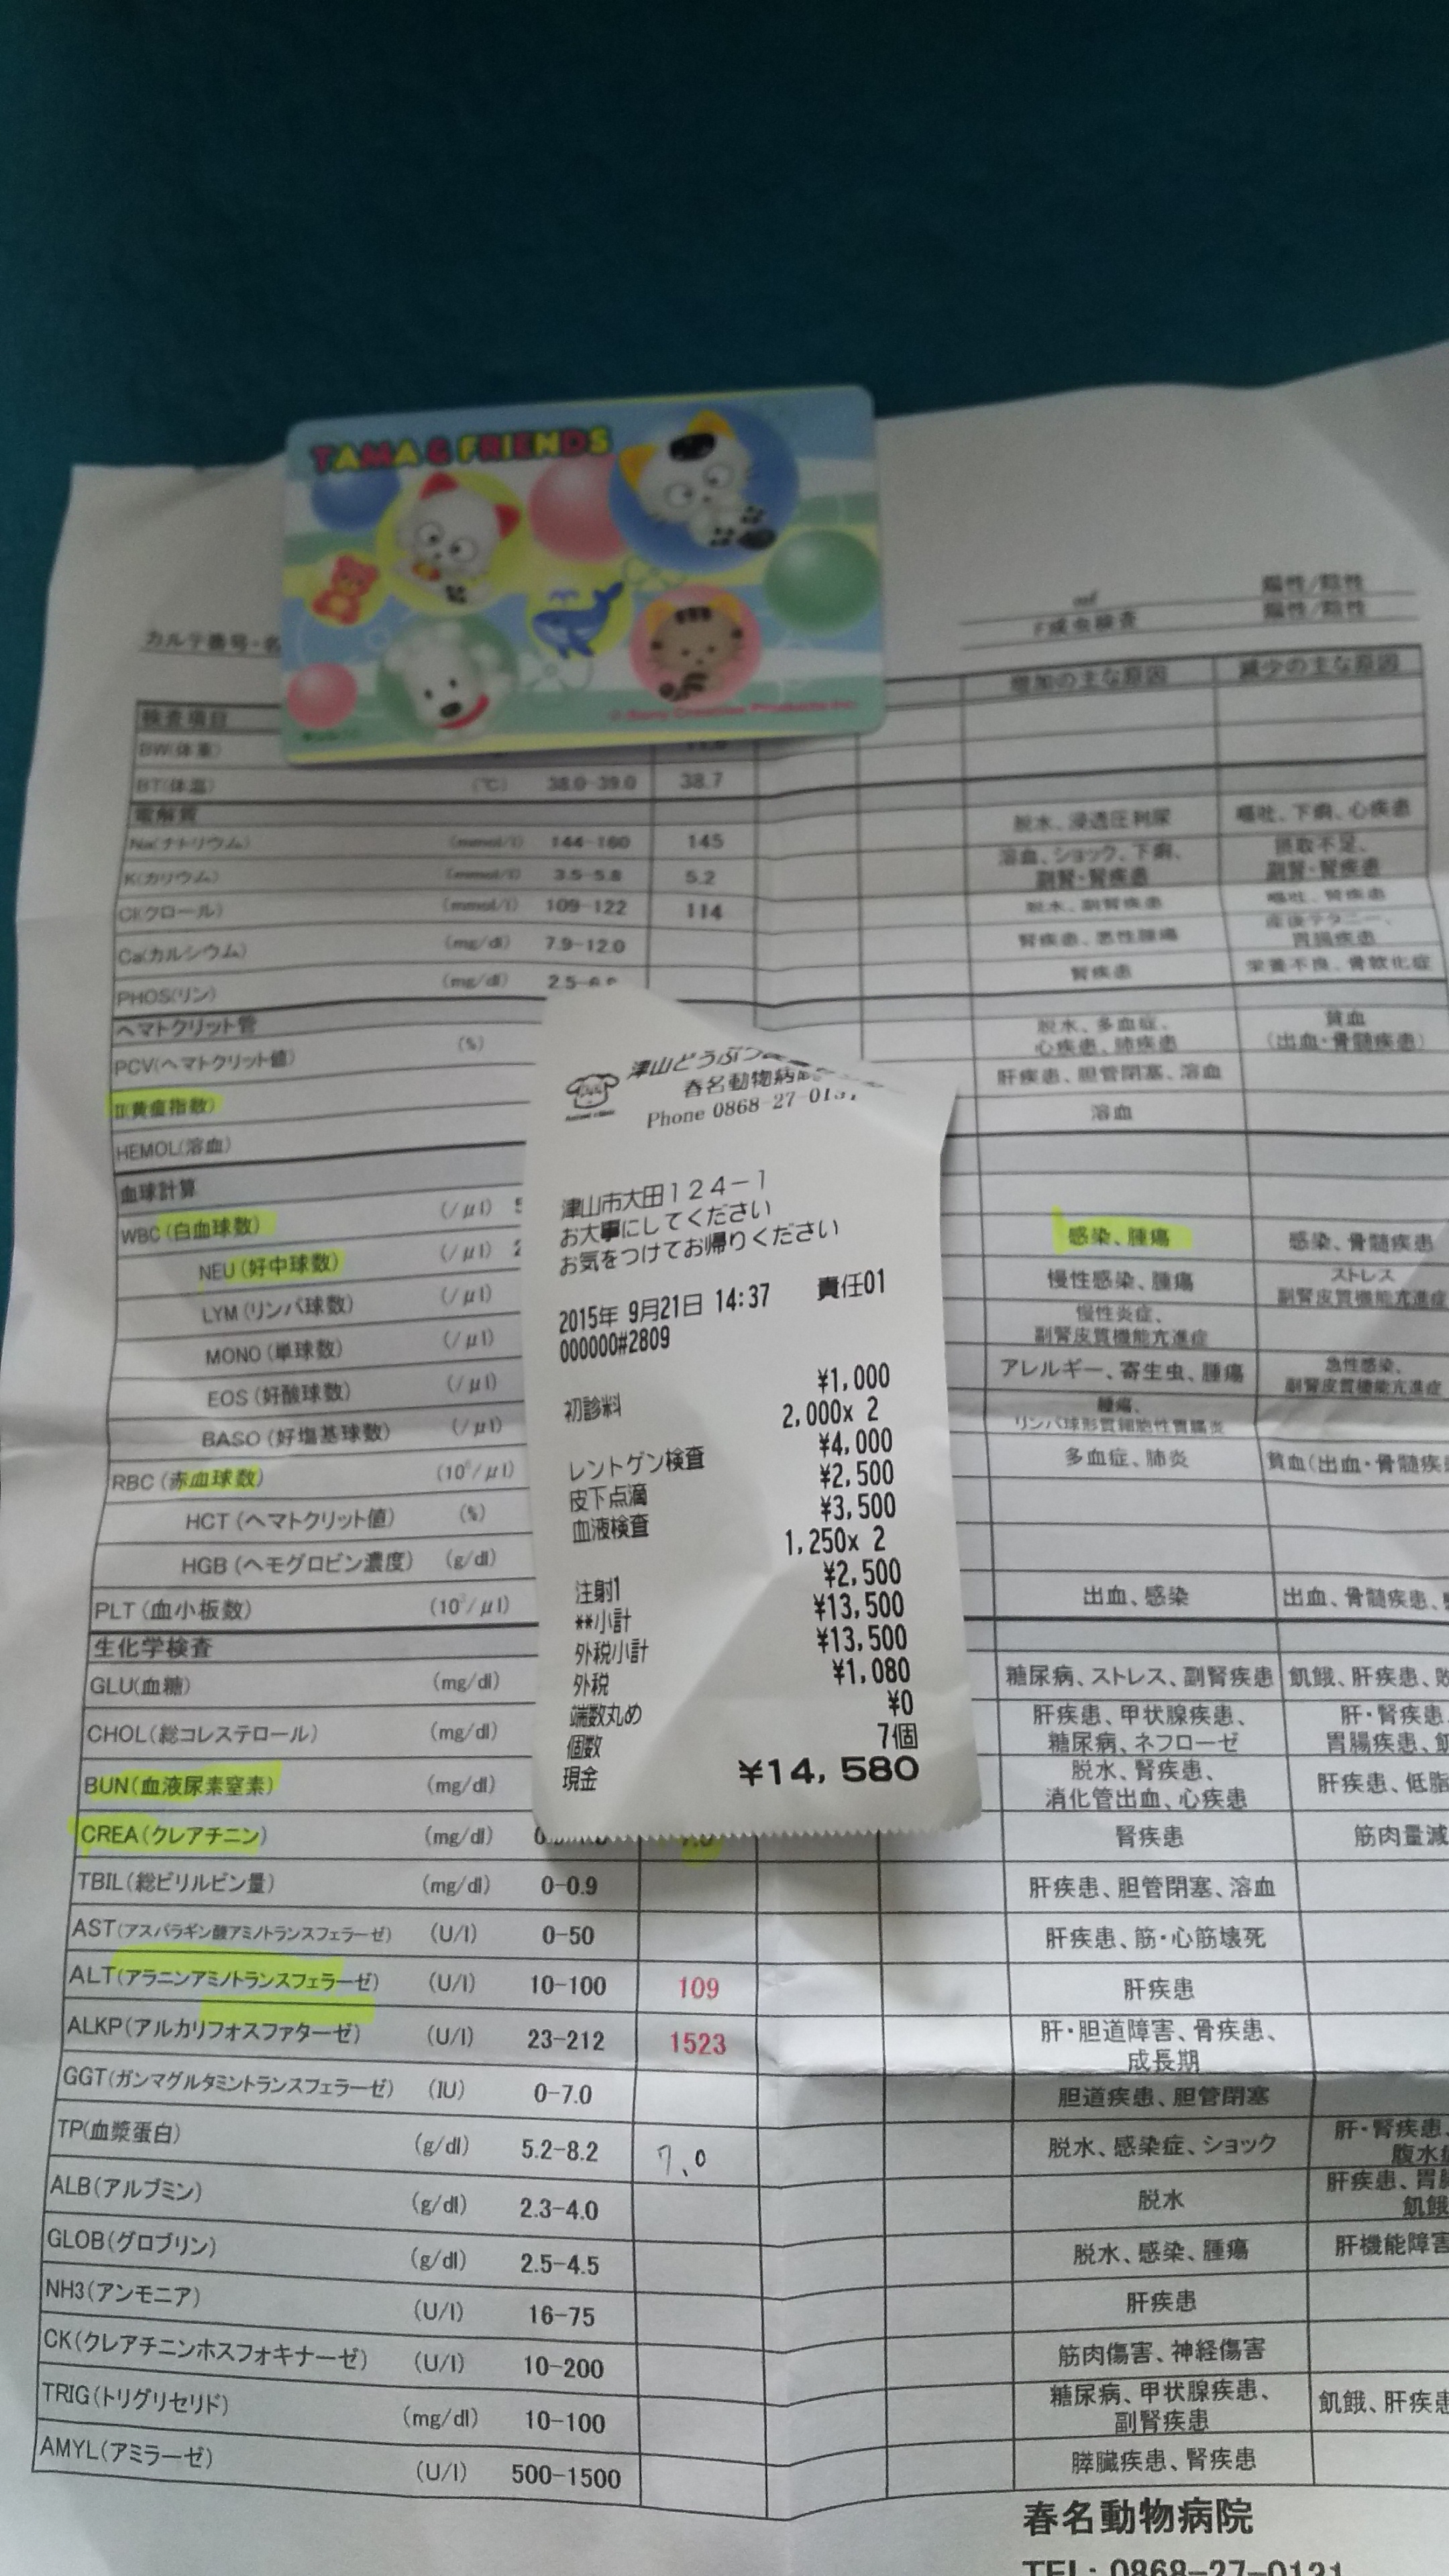 TAMA & FRIENDS
© Sony Creative Products Inc.
カルテ番号・名
陽性/陰性
F成虫検査 陽性/陰性
検査項目 増加の主な原因 減少の主な原因
BW(体重)
BT(体温) (℃) 38.0-39.0 38.7
電解質
Na(ナトリウム) (mmol/l) 144-160 145 脱水、浸透圧利尿 嘔吐、下痢、心疾患
K(カリウム) (mmol/l) 3.5-5.8 5.2 溶血、ショック、下痢、副腎・腎疾患 摂取不足、副腎・腎疾患
Cl(クロール) (mmol/l) 109-122 114 脱水、副腎疾患 嘔吐、腎疾患
Ca(カルシウム) (mg/dl) 7.9-12.0 腎疾患、悪性腫瘍 産後テタニー、胃腸疾患
PHOS(リン) (mg/dl) 2.5- 腎疾患 栄養不良、骨軟化症
ヘマトクリット管
PCV(ヘマトクリット値) (%) 脱水、多血症、心疾患、肺疾患 貧血(出血・骨髄疾患)
II(黄疸指数) 肝疾患、胆管閉塞、溶血
HEMOL(溶血) 溶血
血球計算
WBC(白血球数) (/μl) 5 感染、腫瘍 感染、骨髄疾患
NEU(好中球数) (/μl) 2 慢性感染、腫瘍 ストレス 副腎皮質機能亢進症
LYM(リンパ球数) (/μl) 慢性炎症、副腎皮質機能亢進症
MONO(単球数) (/μl)
EOS(好酸球数) (/μl) アレルギー、寄生虫、腫瘍 急性感染、副腎皮質機能亢進症
BASO(好塩基球数) (/μl) 腫瘍、リンパ球形質細胞性胃腸炎
RBC(赤血球数) (10⁶/μl) 多血症、肺炎 貧血(出血・骨髄疾
HCT(ヘマトクリット値) (%)
HGB(ヘモグロビン濃度) (g/dl)
PLT(血小板数) (10³/μl) 出血、感染 出血、骨髄疾患、
生化学検査
GLU(血糖) (mg/dl) 糖尿病、ストレス、副腎疾患 飢餓、肝疾患、
CHOL(総コレステロール) (mg/dl) 肝疾患、甲状腺疾患、糖尿病、ネフローゼ 肝・腎疾患、胃腸疾患、
BUN(血液尿素窒素) (mg/dl) 脱水、腎疾患、消化管出血、心疾患 肝疾患、低脂
CREA(クレアチニン) (mg/dl) 腎疾患 筋肉量減
TBIL(総ビリルビン量) (mg/dl) 0-0.9 肝疾患、胆管閉塞、溶血
AST(アスパラギン酸アミノトランスフェラーゼ) (U/l) 0-50 肝疾患、筋・心筋壊死
ALT(アラニンアミノトランスフェラーゼ) (U/l) 10-100 109 肝疾患
ALKP(アルカリフォスファターゼ) (U/l) 23-212 1523 肝・胆道障害、骨疾患、成長期
GGT(ガンマグルタミントランスフェラーゼ) (IU) 0-7.0 胆道疾患、胆管閉塞
TP(血漿蛋白) (g/dl) 5.2-8.2 7.0 脱水、感染症、ショック 肝・腎疾患、腹水
ALB(アルブミン) (g/dl) 2.3-4.0 脱水 肝疾患、胃 飢餓
GLOB(グロブリン) (g/dl) 2.5-4.5 脱水、感染、腫瘍 肝機能障害
NH3(アンモニア) (U/l) 16-75 肝疾患
CK(クレアチニンホスフォキナーゼ) (U/l) 10-200 筋肉傷害、神経傷害
TRIG(トリグリセリド) (mg/dl) 10-100 糖尿病、甲状腺疾患、副腎疾患 飢餓、肝疾患
AMYL(アミラーゼ) (U/l) 500-1500 膵臓疾患、腎疾患
春名動物病院
TEL: 0868-27-0131
津山どうぶつ
春名動物病
Phone 0868-27-013
津山市大田124-1
お大事にしてください
お気をつけてお帰りください
2015年 9月21日 14:37 責任01
000000#2809
初診料 ¥1,000
2,000x 2
レントゲン検査 ¥4,000
皮下点滴 ¥2,500
血液検査 ¥3,500
1,250x 2
注射1 ¥2,500
**小計 ¥13,500
外税小計 ¥13,500
外税 ¥1,080
端数丸め ¥0
個数 7個
現金 ¥14,580